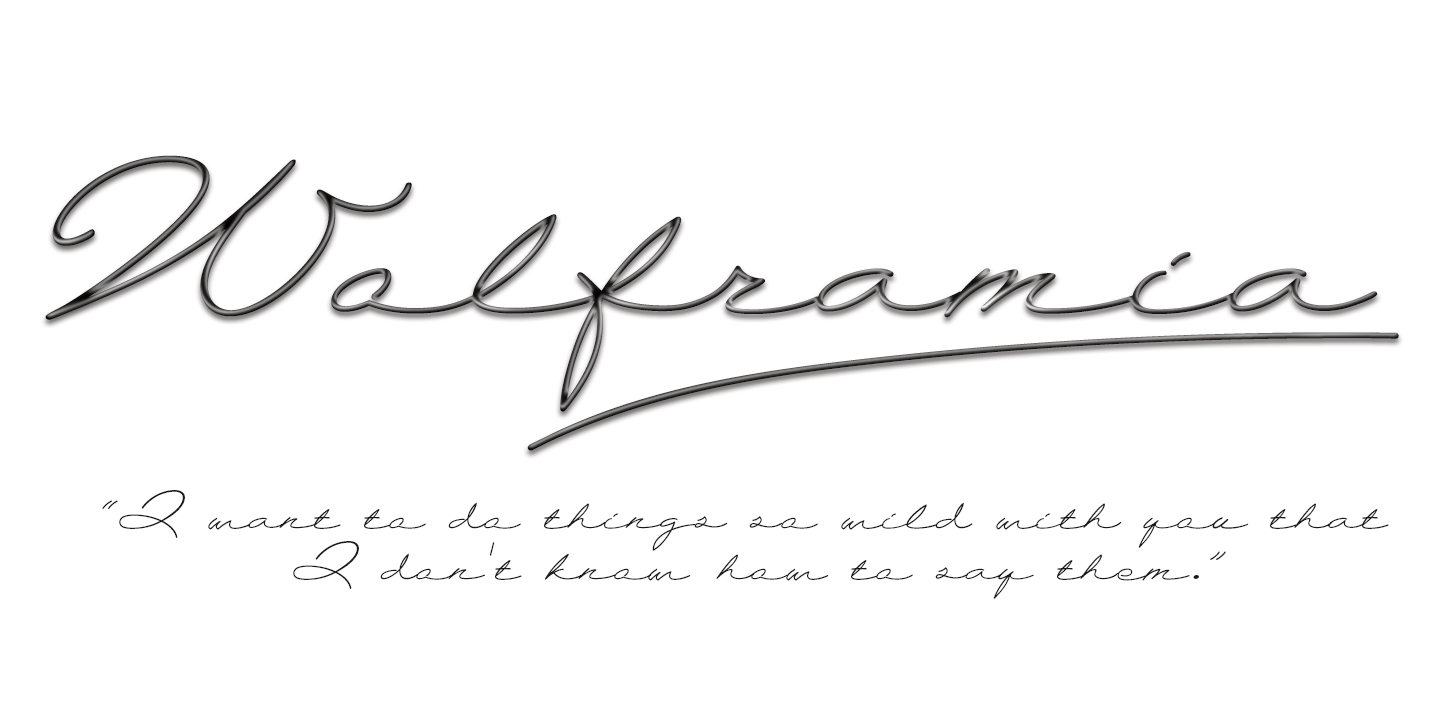 Wolframia
"I want to do things so wild with you that
I don't know how to say them."